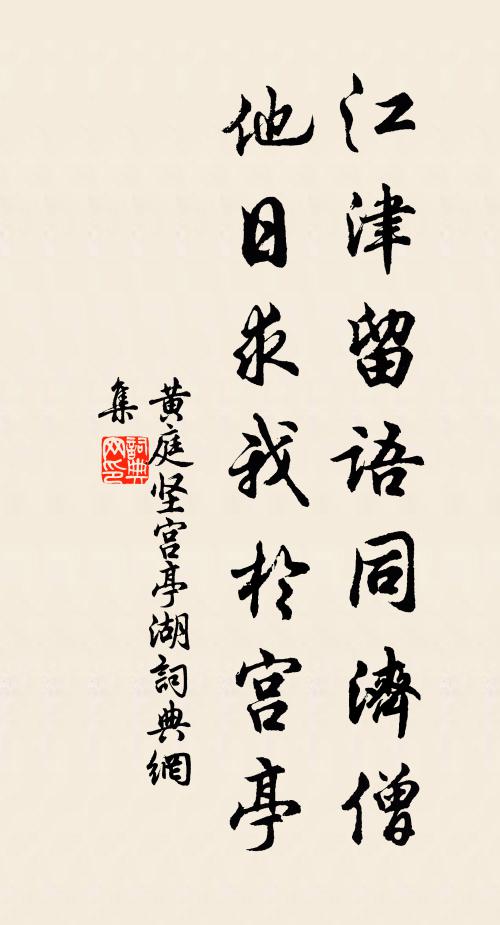 江津留語同濟僧
他日求我於宫亭
黄庭坚宫亭湖詞典網
集
詞典網印